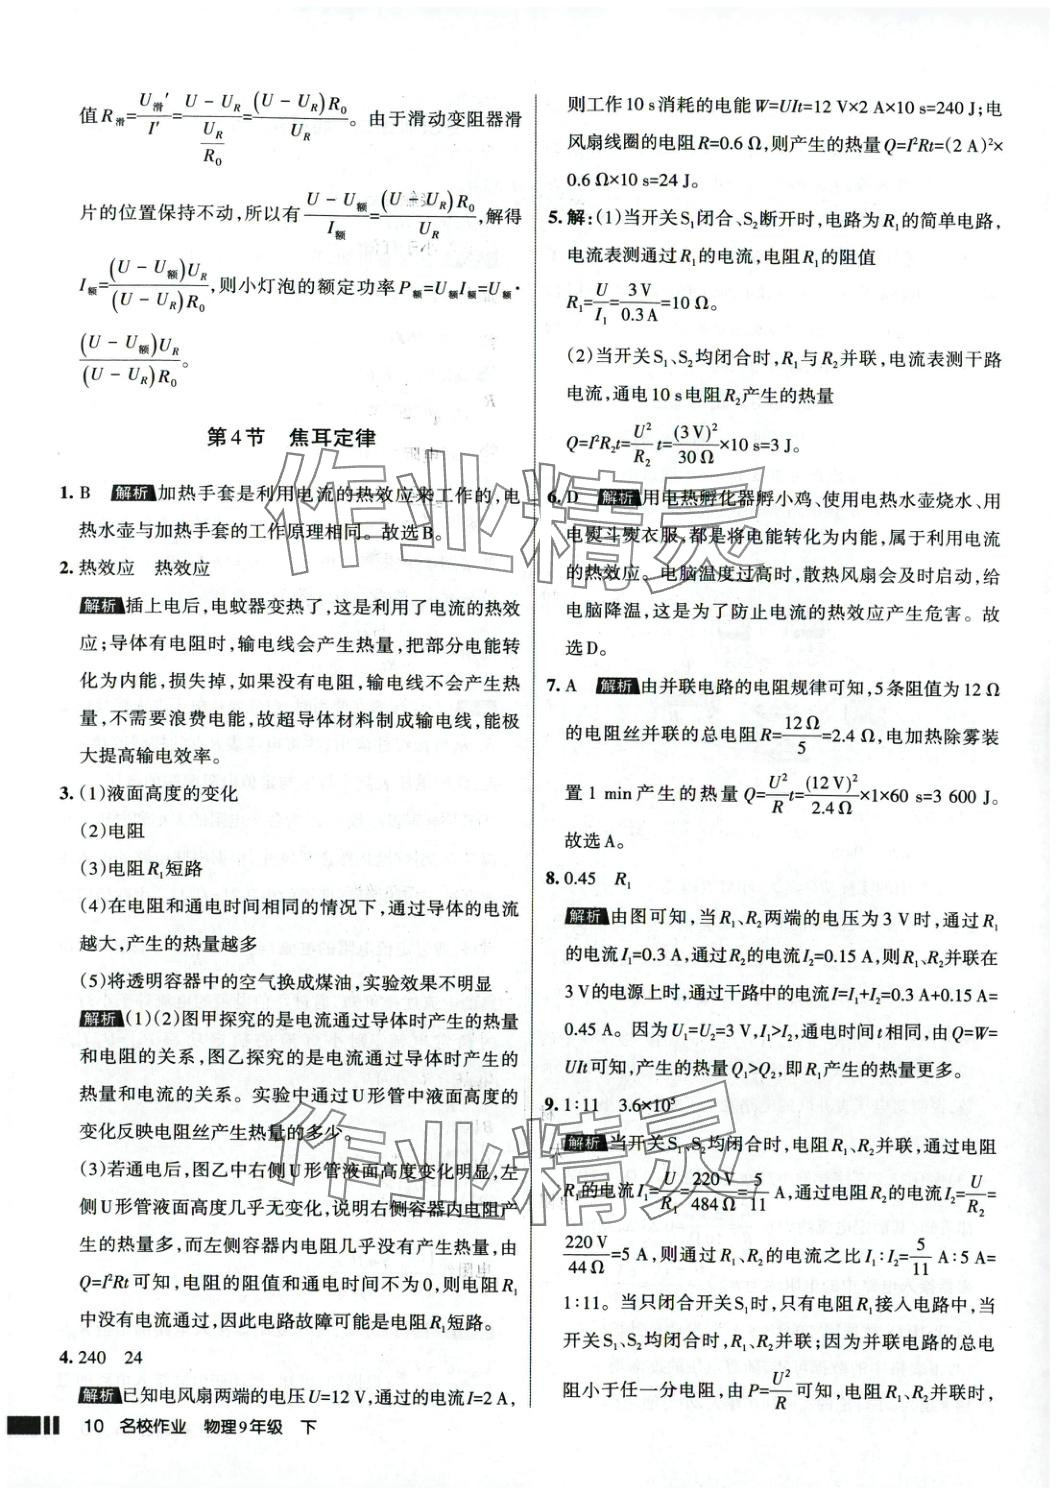 值R滑=U滑′/I′=(U-U_R)/(U_R/R₀)=(U-U_R)R₀/U_R。由于滑动变阻器滑
片的位置保持不动,所以有(U-U额)/I额=(U-U_R)R₀/U_R,解得
I额=(U-U额)U_R/(U-U_R)R₀,则小灯泡的额定功率P额=U额I额=U额·
(U-U额)U_R/(U-U_R)R₀。
第4节 焦耳定律
1. B 解析 加热手套是利用电流的热效应来工作的,电
热水壶与加热手套的工作原理相同。故选B。
2. 热效应 热效应
解析 插上电后,电蚊器变热了,这是利用了电流的热效
应;导体有电阻时,输电线会产生热量,把部分电能转
化为内能,损失掉,如果没有电阻,输电线不会产生热
量,不需要浪费电能,故超导体材料制成输电线,能极
大提高输电效率。
3. (1)液面高度的变化
(2)电阻
(3)电阻R₁短路
(4)在电阻和通电时间相同的情况下,通过导体的电流
越大,产生的热量越多
(5)将透明容器中的空气换成煤油,实验效果不明显
解析 (1)(2)图甲探究的是电流通过导体时产生的热量
和电阻的关系,图乙探究的是电流通过导体时产生的
热量和电流的关系。实验中通过U形管中液面高度的
变化反映电阻丝产生热量的多少。
(3)若通电后,图乙中右侧U形管液面高度变化明显,左
侧U形管液面高度几乎无变化,说明右侧容器内电阻产
生的热量多,而左侧容器内电阻几乎没有产生热量,由
Q=I²Rt可知,电阻的阻值和通电时间不为0,则电阻R₁
中没有电流通过,因此电路故障可能是电阻R₁短路。
4. 240 24
解析 已知电风扇两端的电压U=12 V,通过的电流I=2 A,
10 名校作业 物理9年级 下
则工作10 s消耗的电能W=UIt=12 V×2 A×10 s=240 J;电
风扇线圈的电阻R=0.6 Ω,则产生的热量Q=I²Rt=(2 A)²×
0.6 Ω×10 s=24 J。
5. 解:(1)当开关S₁闭合、S₂断开时,电路为R₁的简单电路,
电流表测通过R₁的电流,电阻R₁的阻值
R₁=U/I₁=3 V/0.3 A=10 Ω。
(2)当开关S₁、S₂均闭合时,R₁与R₂并联,电流表测干路
电流,通电10 s电阻R₂产生的热量
Q=I²R₂t=U²/R₂ t=(3 V)²/30 Ω×10 s=3 J。
6. D 解析 用电热孵化器孵小鸡、使用电热水壶烧水、用
电熨斗熨衣服,都是将电能转化为内能,属于利用电流
的热效应。电脑温度过高时,散热风扇会及时启动,给
电脑降温,这是为了防止电流的热效应产生危害。故
选D。
7. A 解析 由并联电路的电阻规律可知,5条阻值为12 Ω
的电阻丝并联的总电阻R=12 Ω/5=2.4 Ω,电加热除雾装
置1 min产生的热量Q=U²/R t=(12 V)²/2.4 Ω×1×60 s=3 600 J。
故选A。
8. 0.45 R₁
解析 由图可知,当R₁、R₂两端的电压为3 V时,通过R₁
的电流I₁=0.3 A,通过R₂的电流I₂=0.15 A,则R₁、R₂并联在
3 V的电源上时,通过干路中的电流I=I₁+I₂=0.3 A+0.15 A=
0.45 A。因为U₁=U₂=3 V,I₁>I₂,通电时间t相同,由Q=W=
UIt可知,产生的热量Q₁>Q₂,即R₁产生的热量更多。
9. 1:11 3.6×10⁵
解析 当开关S₁、S₂均闭合时,电阻R₁、R₂并联,通过电阻
R₁的电流I₁=U/R₁=220 V/484 Ω=5/11 A,通过电阻R₂的电流I₂=U/R₂=
220 V/44 Ω=5 A,则通过R₁、R₂的电流之比I₁:I₂=5/11 A:5 A=
1:11。当只闭合开关S₁时,只有电阻R₁接入电路中,当
开关S₁、S₂均闭合时,R₁、R₂并联;因为并联电路的总电
阻小于任一分电阻,由P=U²/R可知,电阻R₁、R₂并联时,
作业精灵
作业精灵